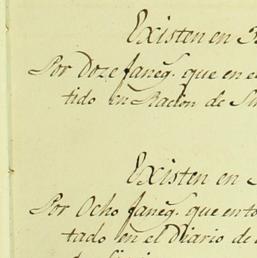 Existen en
Por Doze faneg.^s que en e
tido en Racion de
Existen en
Por Ocho faneg.^s que en to
tado en el Diario de